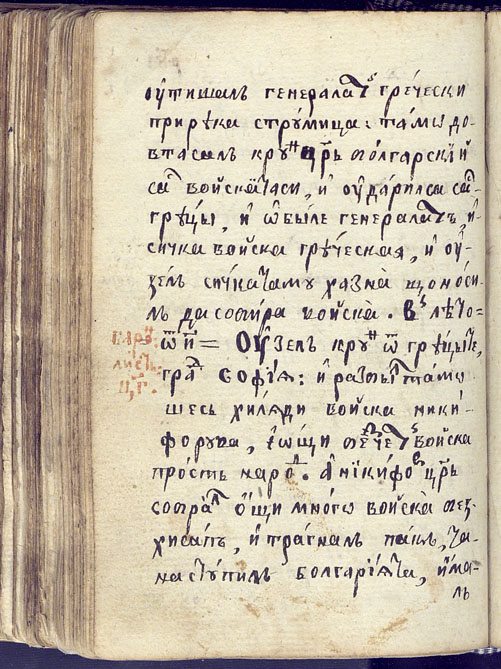 оу҆тишалъ генералатъ гре́чески
при река струмица: тамѡ до-
втасалъ крꙋнъ ц҃рь болгарскїй
са войскатаси, и҆ оу҆дарилса са
грьцы, и҆ ѡ҆бїле генералатъ, и҆
сичка войска греческаѧ, и҆ оу҆-
зелъ сичкатамꙋ хазна що носи-
лъ да собира войска. въ лѣто-
ѿ н҃і = оу҆зелъ крꙋнъ ѿ грьцыте,
градъ софїѧ: и҆ разбилъ тамѡ
шесь хилѧди войска ники-
форꙋва, ѡщи
простъ народъ. а҆ никифоръ ц҃рь
собралъ о҆щи многѡ войска без-
хисапъ, и҆ трагналъ пакъ, да
наст꙽пилъ болгарїѧта, и҆ма-
лъ